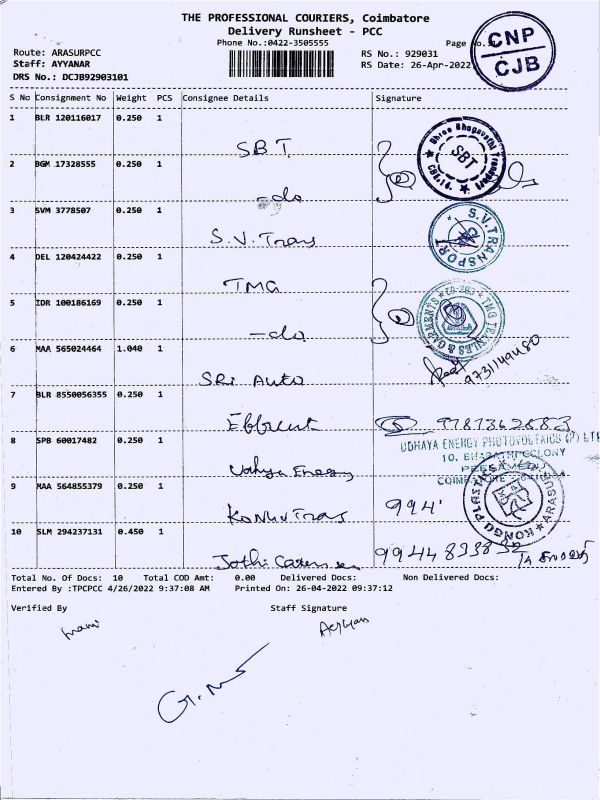 THE PROFESSIONAL COURIERS, Coimbatore
Delivery Runsheet - PCC
Phone No.:0422-3505555
Page no.:1
CNP
CJB
Route: ARASURPCC
RS No.: 929031
Staff: AYYANAR
RS Date: 26-Apr-2022
DRS No.: DCJB92903101
S No Consignment No Weight PCS Consignee Details Signature
1 BLR 120116017 0.250 1 SBT
Shree Bhagavathi Transport SBT
2 BGM 17328555 0.250 1 -do
3 SVM 3778507 0.250 1 S.V. Trans
S.V. TRANSPORT
4 DEL 120424422 0.250 1 TMG
5 IDR 100186169 0.250 1 -do
TMG TEXTILES & GARMENTS
6 MAA 565024464 1.040 1 SRI Auto
7 BLR 8550056355 0.250 1 9787362883
UDHAYA ENERGY PHOTOVOLTAICS (P) LTD
8 SPB 60017482 0.250 1 Udhya Energy
10, BHARATHI COLONY
PEELAMEDU
9 MAA 564855379 0.250 1 Kongu Trans 994
KONGU PLASTICS ARASUR
10 SLM 294237131 0.450 1 Jothi
Total No. Of Docs: 10 Total COD Amt: 0.00 Delivered Docs: Non Delivered Docs:
Entered By :TPCPCC 4/26/2022 9:37:08 AM Printed On: 26-04-2022 09:37:12
Verified By Staff Signature